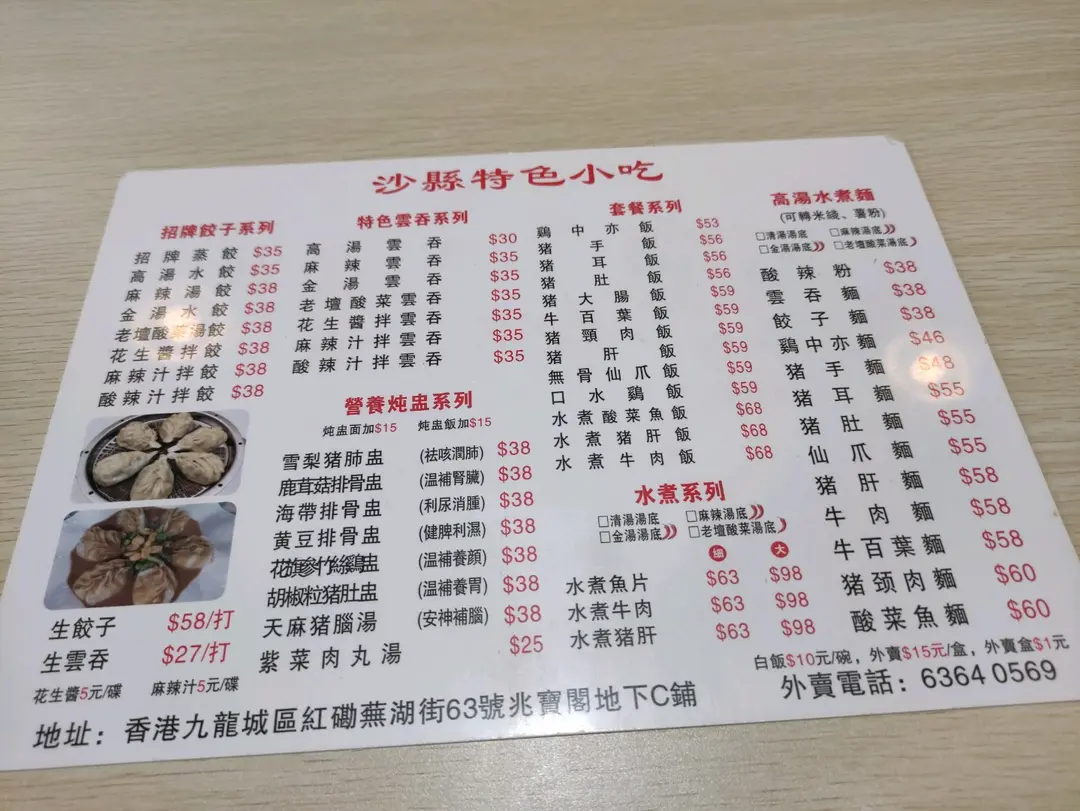 沙縣特色小吃
招牌餃子系列
招牌蒸餃 $35
高湯水餃 $35
麻辣湯餃 $38
金湯水餃 $38
老壇酸菜湯餃 $38
花生醬拌餃 $38
麻辣汁拌餃 $38
酸辣汁拌餃 $38
生餃子 $58/打
生雲吞 $27/打
花生醬5元/碟 麻辣汁5元/碟
特色雲吞系列
高湯雲吞 $30
麻辣雲吞 $35
金湯雲吞 $35
老壇酸菜雲吞 $35
花生醬拌雲吞 $35
麻辣汁拌雲吞 $35
酸辣汁拌雲吞 $35
營養炖盅系列
炖盅面加$15 炖盅飯加$15
雪梨猪肺盅 (祛咳潤肺) $38
鹿茸菇排骨盅 (温補腎臟) $38
海帶排骨盅 (利尿消腫) $38
黄豆排骨盅 (健脾利濕) $38
花旗參竹絲鷄盅 (温補養顔) $38
胡椒粒猪肚盅 (温補養胃) $38
天麻猪腦湯 (安神補腦) $38
紫菜肉丸湯 $25
套餐系列
鷄中亦飯 $53
猪手飯 $56
猪耳飯 $56
猪肚飯 $56
猪大腸飯 $59
牛百葉飯 $59
猪頸肉飯 $59
猪肝飯 $59
無骨仙爪飯 $59
口水鷄飯 $59
水煮酸菜魚飯 $68
水煮猪肝飯 $68
水煮牛肉飯 $68
水煮系列
□清湯湯底 □麻辣湯底
□金湯湯底 □老壇酸菜湯底
细 大
水煮魚片 $63 $98
水煮牛肉 $63 $98
水煮猪肝 $63 $98
高湯水煮麵
(可轉米綫、薯粉)
□清湯湯底 □麻辣湯底
□金湯湯底 □老壇酸菜湯底
酸辣粉 $38
雲吞麵 $38
餃子麵 $38
鷄中亦麵 $46
猪手麵 $48
猪耳麵 $55
猪肚麵 $55
仙爪麵 $55
猪肝麵 $58
牛肉麵 $58
牛百葉麵 $58
猪颈肉麵 $60
酸菜魚麵 $60
白飯$10元/碗，外賣$15元/盒，外賣盒$1元
外賣電話：6364 0569
地址：香港九龍城區紅磡蕪湖街63號兆寶閣地下C鋪